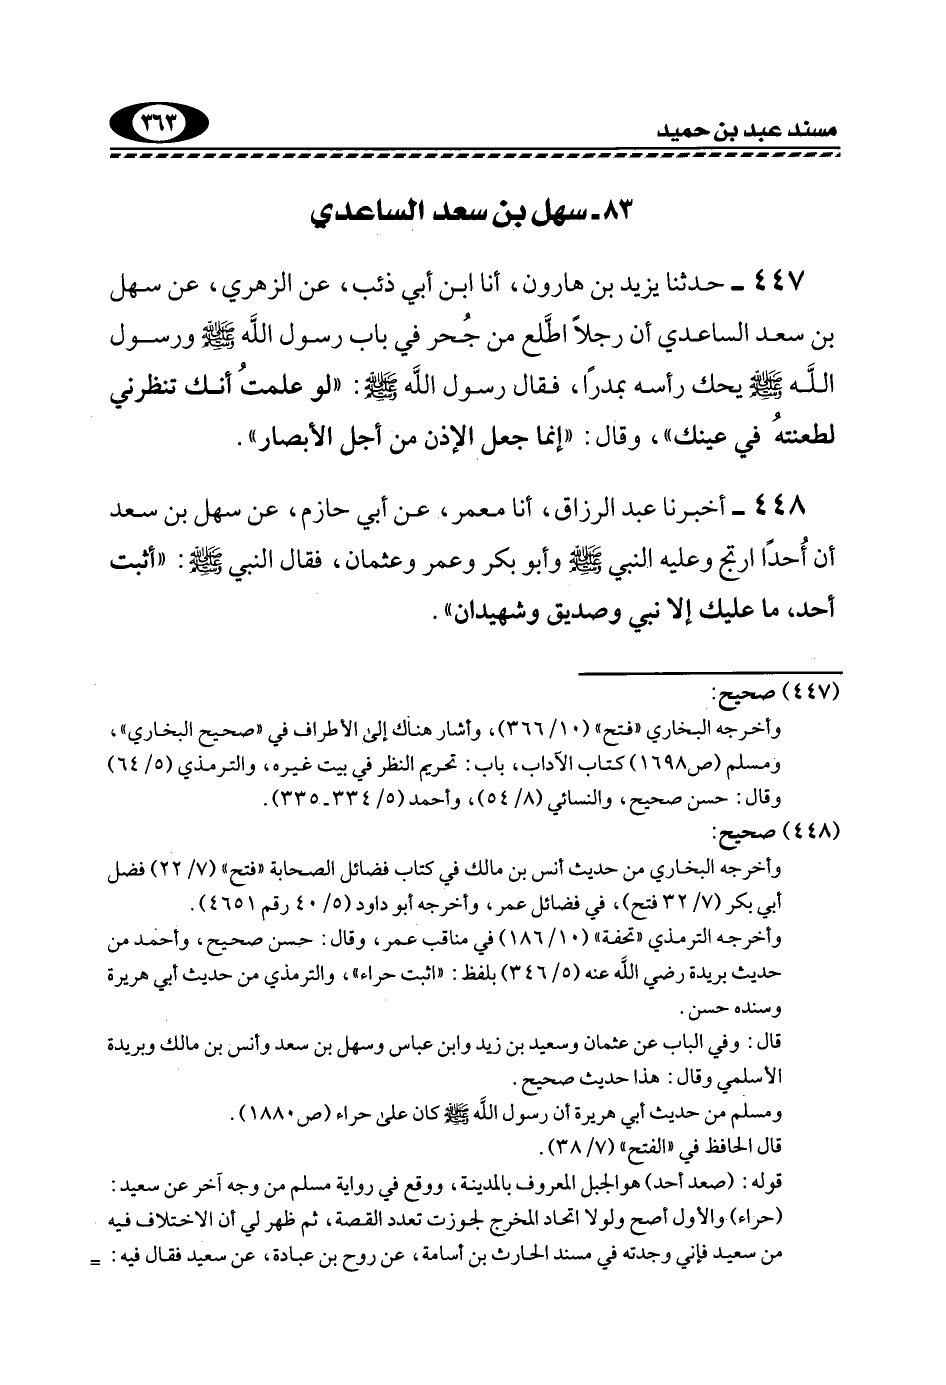 مسند عبد بن حميد
٣٦٣
٨٣ـ سهل بن سعد الساعدي
٤٤٧ ـ حدثنا يزيد بن هارون، أنا ابن أبي ذئب، عن الزهري، عن سهل
بن سعد الساعدي أن رجلاً اطَّلع من جُحر في باب رسول اللَّه ﷺ ورسول
اللَّه ﷺ يحك رأسه بمدرًا، فقال رسول اللَّه ﷺ: «لو علمتُ أنك تنظرني
لطعنتهُ في عينك»، وقال: «إنما جعل الإذن من أجل الأبصار».
٤٤٨ ـ أخبرنا عبد الرزاق، أنا معمر، عن أبي حازم، عن سهل بن سعد
أن أُحدًا ارتج وعليه النبي ﷺ وأبو بكر وعمر وعثمان، فقال النبي ﷺ: «أثبت
أحد، ما عليك إلا نبي وصديق وشهيدان».
(٤٤٧) صحيح:
وأخرجه البخاري «فتح» (١٠/ ٣٦٦)، وأشار هناك إلى الأطراف في «صحيح البخاري»،
ومسلم (ص١٦٩٨) كتاب الآداب، باب: تحريم النظر في بيت غيره، والترمذي (٥/ ٦٤)
وقال: حسن صحيح، والنسائي (٨/ ٥٤)، وأحمد (٥/ ٣٣٤ـ ٣٣٥).
(٤٤٨) صحيح:
وأخرجه البخاري من حديث أنس بن مالك في كتاب فضائل الصحابة «فتح» (٧/ ٢٢) فضل
أبي بكر (٧/ ٣٢ فتح)، في فضائل عمر، وأخرجه أبو داود (٥/ ٤٠ رقم ٤٦٥١).
وأخرجه الترمذي «تحفة» (١٠/ ١٨٦) في مناقب عمر، وقال: حسن صحيح، وأحمد من
حديث بريدة رضي اللَّه عنه (٥/ ٣٤٦) بلفظ: «اثبت حراء»، والترمذي من حديث أبي هريرة
وسنده حسن.
قال: وفي الباب عن عثمان وسعيد بن زيد وابن عباس وسهل بن سعد وأنس بن مالك وبريدة
الأسلمي وقال: هذا حديث صحيح.
ومسلم من حديث أبي هريرة أن رسول اللَّه ﷺ كان على حراء (ص١٨٨٠).
قال الحافظ في «الفتح» (٧/ ٣٨).
قوله: (صعد أحد) هو الجبل المعروف بالمدينة، ووقع في رواية مسلم من وجه آخر عن سعيد:
(حراء) والأول أصح ولولا اتحاد المخرج لجوزت تعدد القصة، ثم ظهر لي أن الاختلاف فيه
من سعيد فإني وجدته في مسند الحارث بن أسامة، عن روح بن عبادة، عن سعيد فقال فيه: =